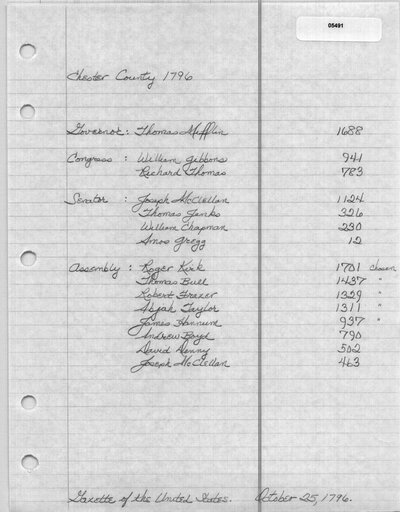 05491
Chester County 1796
Governor: Thomas Mifflin 1688
Congress: William Gibbons 941
Richard Thomas 783
Senator: Joseph McClellan 1124
Thomas Jenks 326
William Chapman 230
Amos Gregg 12
Assembly: Roger Kirk 1701 chosen
Thomas Bull 1437 "
Robert Frazer 1329 "
Abjah Taylor 1311 "
James Hannum 937 "
Andrew Boyd 790
David Denny 502
Joseph McClellan 463
Gazette of the United States. October 25, 1796.